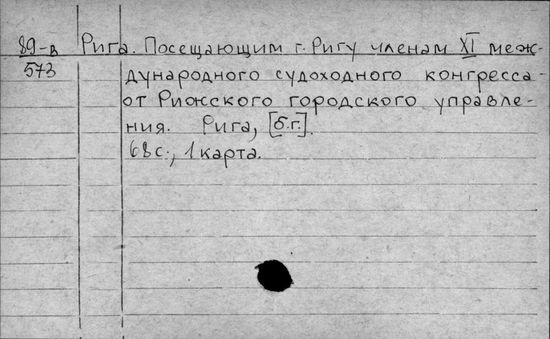 89-в Рига. Посещающим г. Ригу членам XI меж-
573 дународного судоходного конгресса
от Рижского городского управле-
ния. Рига, [б.г.].
68 с., 1 карта.